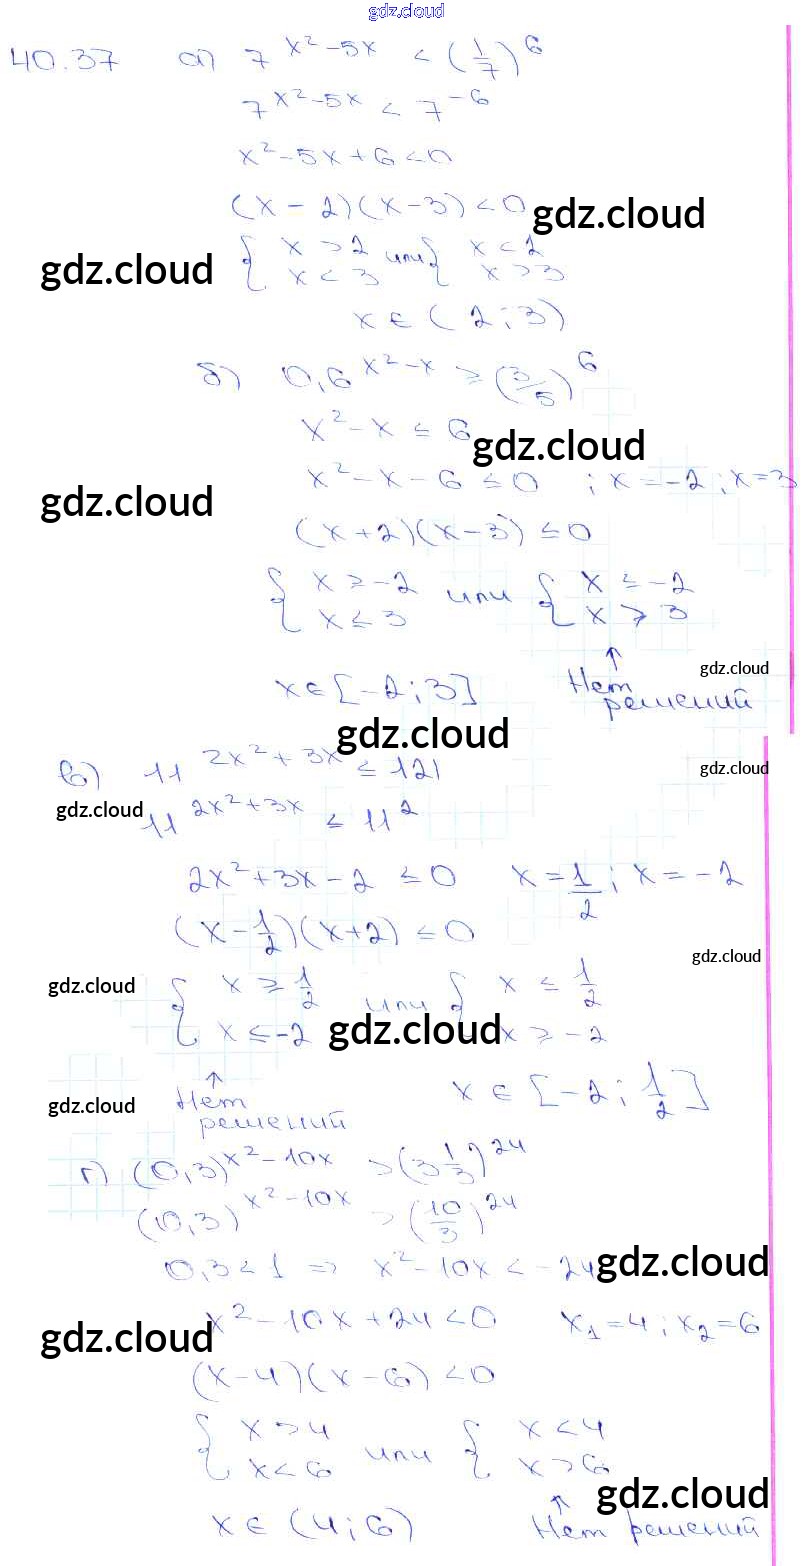 gdz.cloud
40.37 а) 7^(x²-5x) < (1/7)^6
7^(x²-5x) < 7^(-6)
x²-5x+6<0
(x-2)(x-3)<0 gdz.cloud
gdz.cloud { x>2 x<3 или { x<2 x>3
x∈(2;3)
б) 0,6^(x²-x) ≥ (3/5)^6
x²-x ≤ 6 gdz.cloud
gdz.cloud x²-x-6≤0 ; x=-2; x=3
(x+2)(x-3)≤0
{ x≥-2 x≤3 или { x≤-2 x≥3
x∈[-2;3] ↑ Нет решений gdz.cloud
gdz.cloud
в) 11^(2x²+3x) ≤ 121 gdz.cloud
gdz.cloud 11^(2x²+3x) ≤ 11²
2x²+3x-2 ≤0 x=1/2; x=-2
(x-1/2)(x+2)≤0 gdz.cloud
gdz.cloud { x≥1/2 x≤-2 или { x≤1/2 x≥-2 gdz.cloud
gdz.cloud ↑ Нет решений x∈[-2;1/2]
г) (0,3)^(x²-10x) >(3 1/3)^24
(0,3)^(x²-10x) >(10/3)^24
0,3<1 => x²-10x<-24 gdz.cloud
gdz.cloud x²-10x+24<0 x₁=4; x₂=6
(x-4)(x-6)<0
{ x>4 x<6 или { x<4 x>6 gdz.cloud
x∈(4;6) ↑ Нет решений